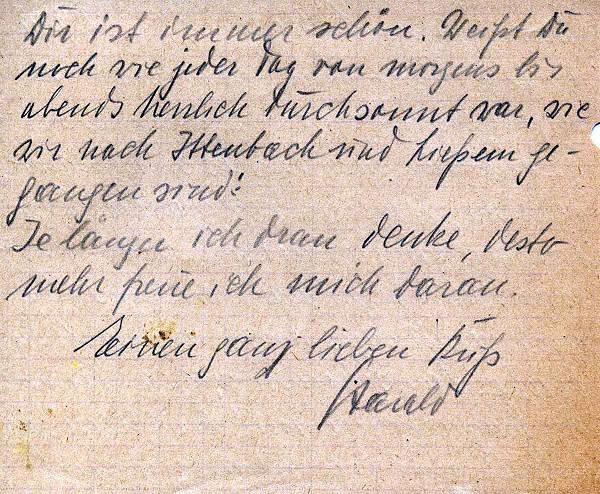 Dir ist immer schön. Weißt Du
noch wie jeder Tag von morgens bis
abends herrlich durchsonnt war, wie
wir nach Ittenbach und ge-
gangen sind!
Je länger ich dran denke, desto
mehr freue ich mich daran.
Deinen ganz lieben Kuß
Harald